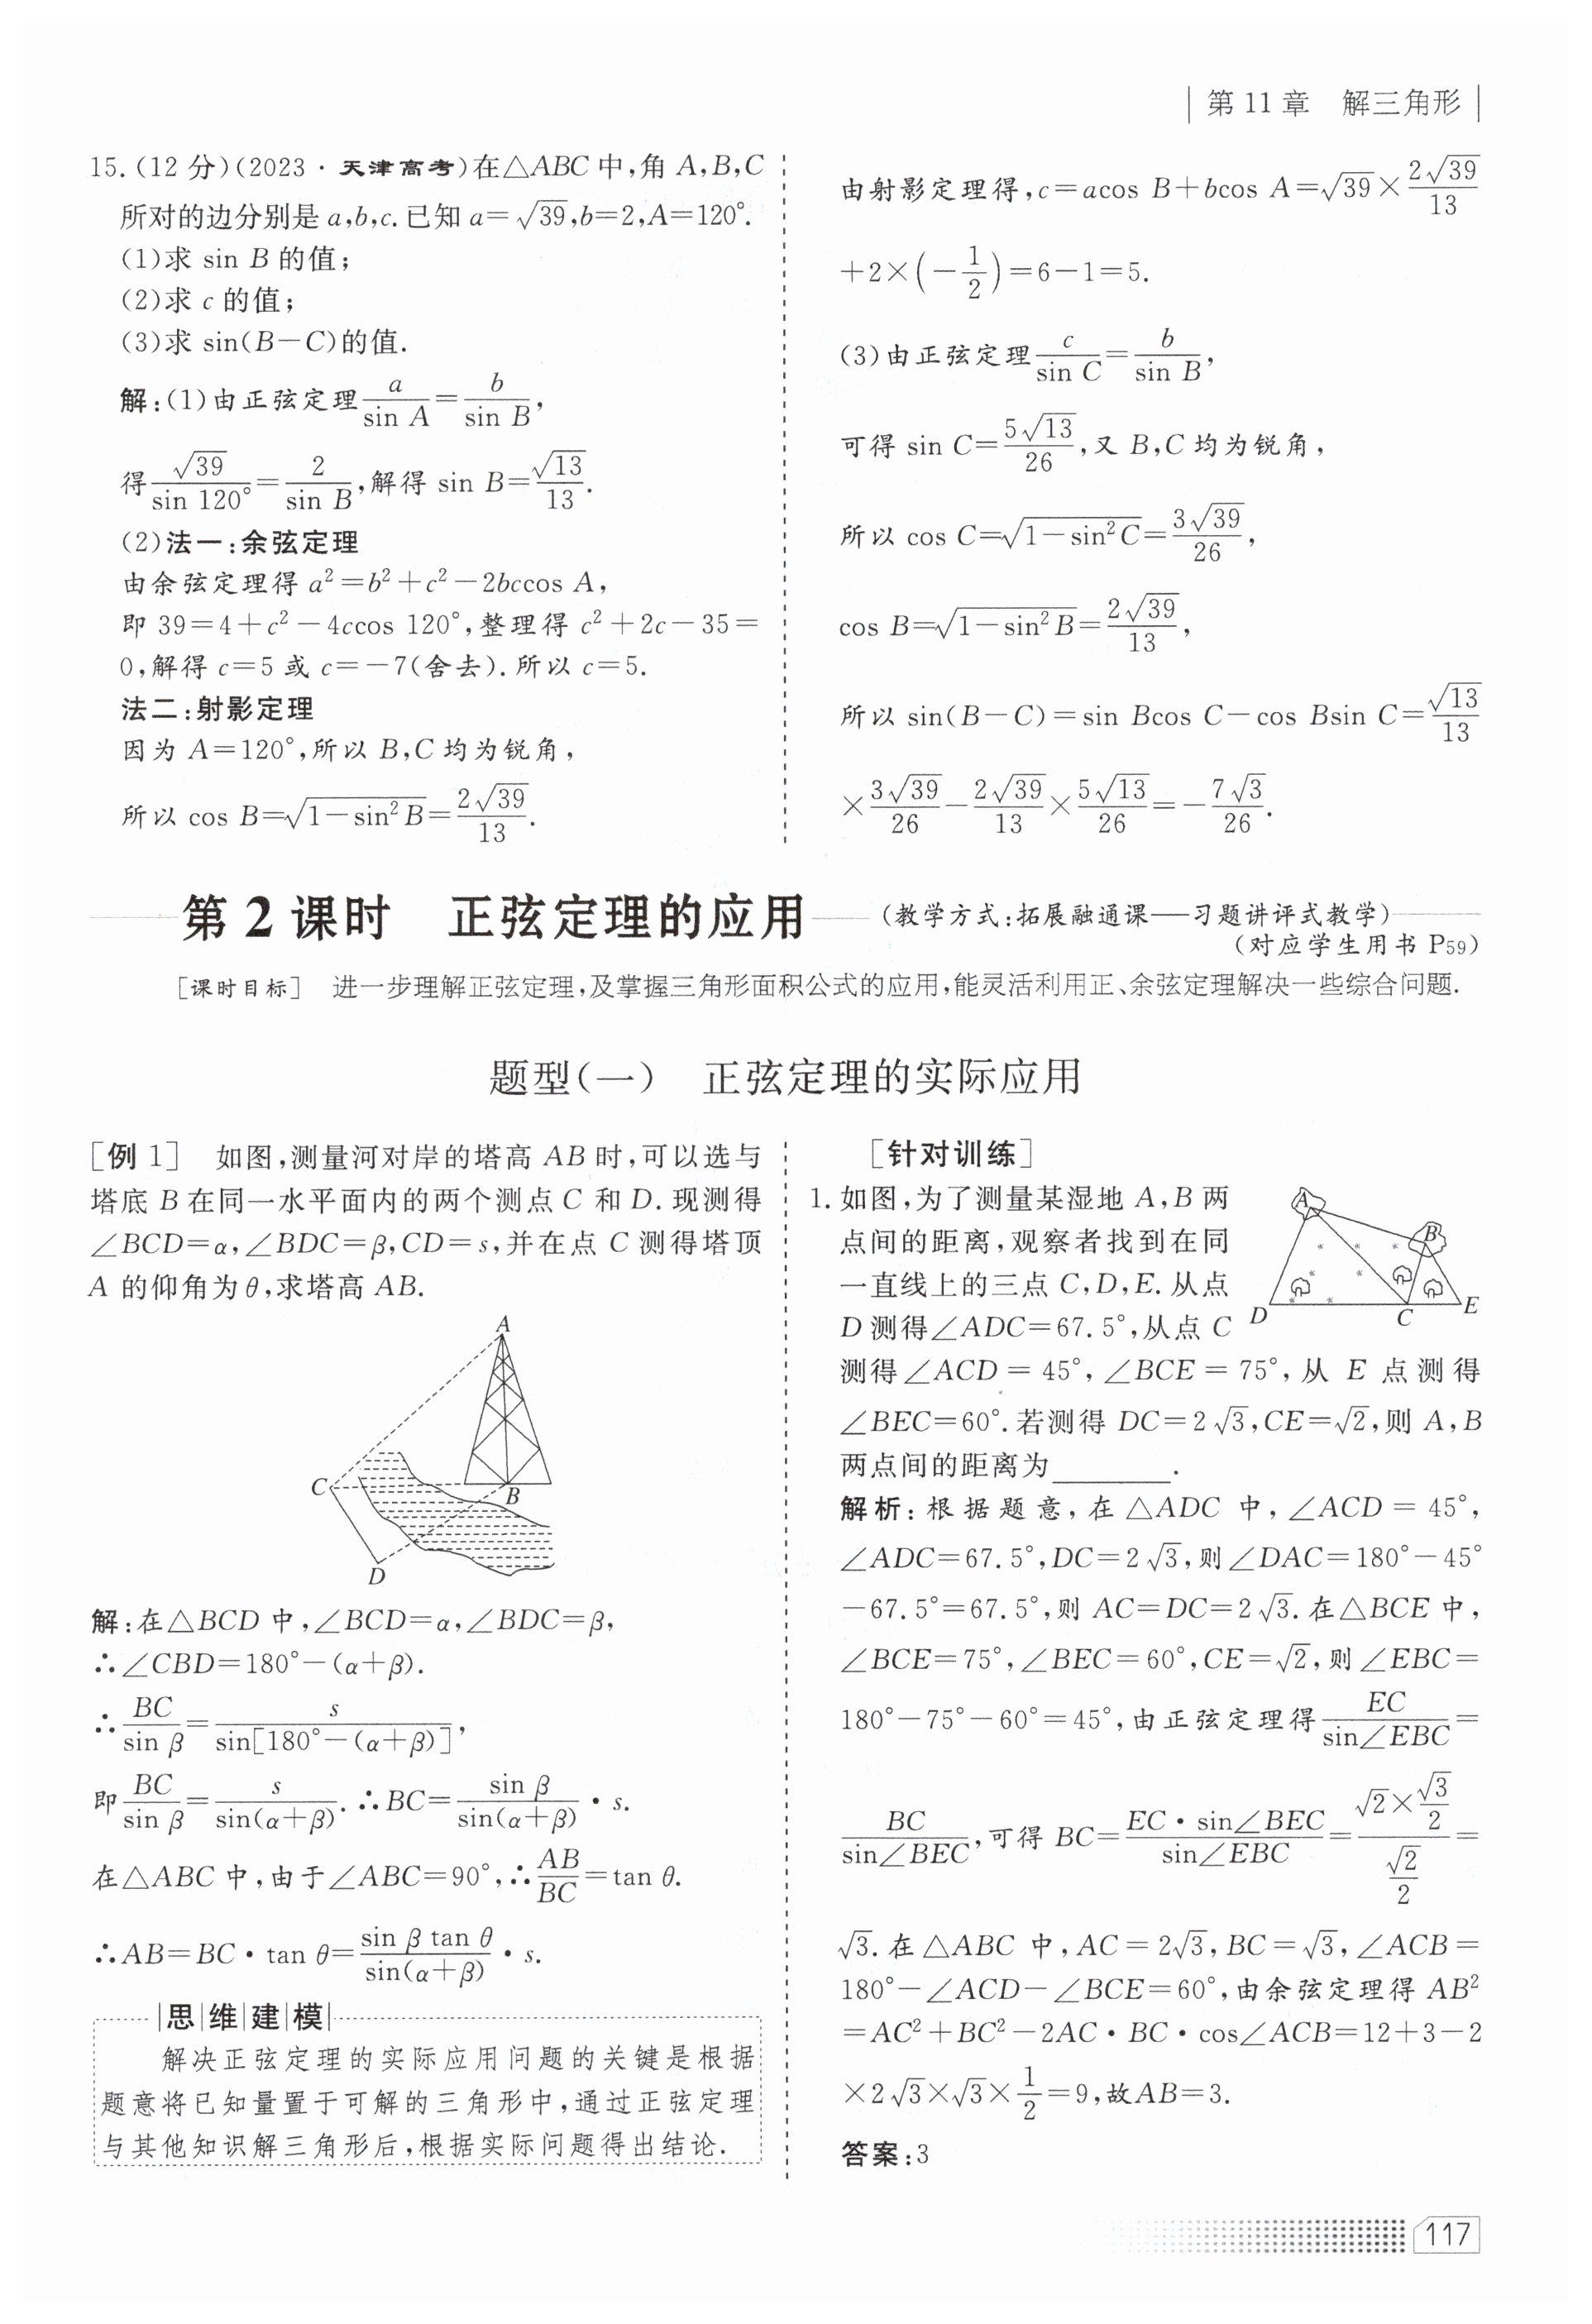 第 11 章　解三角形
15.(12 分)(2023·天津高考)在△ABC 中,角 A,B,C
所对的边分别是 a,b,c.已知 a=√39,b=2,A=120°.
(1)求 sin B 的值;
(2)求 c 的值;
(3)求 sin(B－C)的值.
解:(1)由正弦定理 a/sin A = b/sin B,
得 √39/sin 120° = 2/sin B,解得 sin B=√13/13.
(2)法一:余弦定理
由余弦定理得 a²=b²+c²－2bccos A,
即 39=4+c²－4ccos 120°,整理得 c²+2c－35=
0,解得 c=5 或 c=－7(舍去).所以 c=5.
法二:射影定理
因为 A=120°,所以 B,C 均为锐角,
所以 cos B=√(1－sin²B)=2√39/13.
由射影定理得,c=acos B+bcos A=√39×2√39/13
+2×(－1/2)=6－1=5.
(3)由正弦定理 c/sin C = b/sin B,
可得 sin C=5√13/26,又 B,C 均为锐角,
所以 cos C=√(1－sin²C)=3√39/26,
cos B=√(1－sin²B)=2√39/13,
所以 sin(B－C)=sin Bcos C－cos Bsin C=√13/13
×3√39/26－2√39/13×5√13/26=－7√3/26.
第 2 课时　正弦定理的应用 (教学方式:拓展融通课——习题讲评式教学)
(对应学生用书 P59)
[课时目标]　进一步理解正弦定理,及掌握三角形面积公式的应用,能灵活利用正、余弦定理解决一些综合问题.
题型(一)　正弦定理的实际应用
[例 1]　如图,测量河对岸的塔高 AB 时,可以选与
塔底 B 在同一水平面内的两个测点 C 和 D.现测得
∠BCD=α,∠BDC=β,CD=s,并在点 C 测得塔顶
A 的仰角为θ,求塔高 AB.
A
C
B
D
解:在△BCD 中,∠BCD=α,∠BDC=β,
∴∠CBD=180°－(α+β).
∴BC/sin β = s/sin[180°－(α+β)],
即 BC/sin β = s/sin(α+β).∴BC=sin β/sin(α+β)·s.
在△ABC 中,由于∠ABC=90°,∴AB/BC=tan θ.
∴AB=BC·tan θ=sin β tan θ/sin(α+β)·s.
思维建模
解决正弦定理的实际应用问题的关键是根据
题意将已知量置于可解的三角形中,通过正弦定理
与其他知识解三角形后,根据实际问题得出结论.
[针对训练]
1.如图,为了测量某湿地 A,B 两
点间的距离,观察者找到在同
一直线上的三点 C,D,E.从点
D 测得∠ADC=67.5°,从点 C
A
B
D
C
E
测得∠ACD=45°,∠BCE=75°,从 E 点测得
∠BEC=60°.若测得 DC=2√3,CE=√2,则 A,B
两点间的距离为________.
解析:根据题意,在△ADC 中,∠ACD=45°,
∠ADC=67.5°,DC=2√3,则∠DAC=180°－45°
－67.5°=67.5°,则 AC=DC=2√3.在△BCE 中,
∠BCE=75°,∠BEC=60°,CE=√2,则∠EBC=
180°－75°－60°=45°,由正弦定理得 EC/sin∠EBC =
BC/sin∠BEC,可得 BC=EC·sin∠BEC/sin∠EBC=(√2×√3/2)/(√2/2)=
√3.在△ABC 中,AC=2√3,BC=√3,∠ACB=
180°－∠ACD－∠BCE=60°,由余弦定理得 AB²
=AC²+BC²－2AC·BC·cos∠ACB=12+3－2
×2√3×√3×1/2=9,故AB=3.
答案:3
117